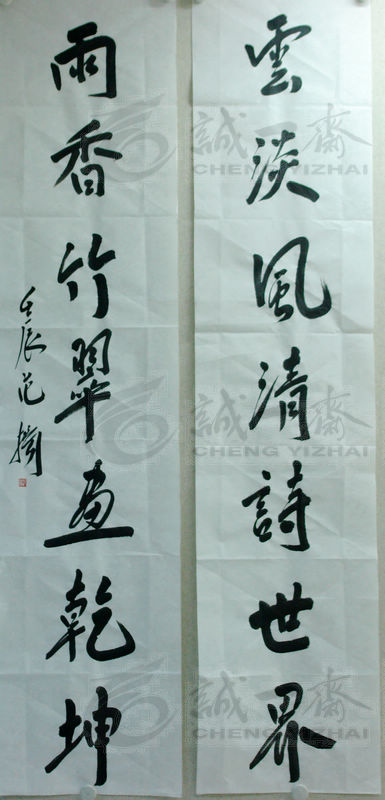 雲淡風清詩世界
雨香竹翠画乾坤
壬辰范
誠一齋
CHENGYIZHAI
誠一齋
CHENG YIZHAI
誠一齋
CHENG YIZHAI